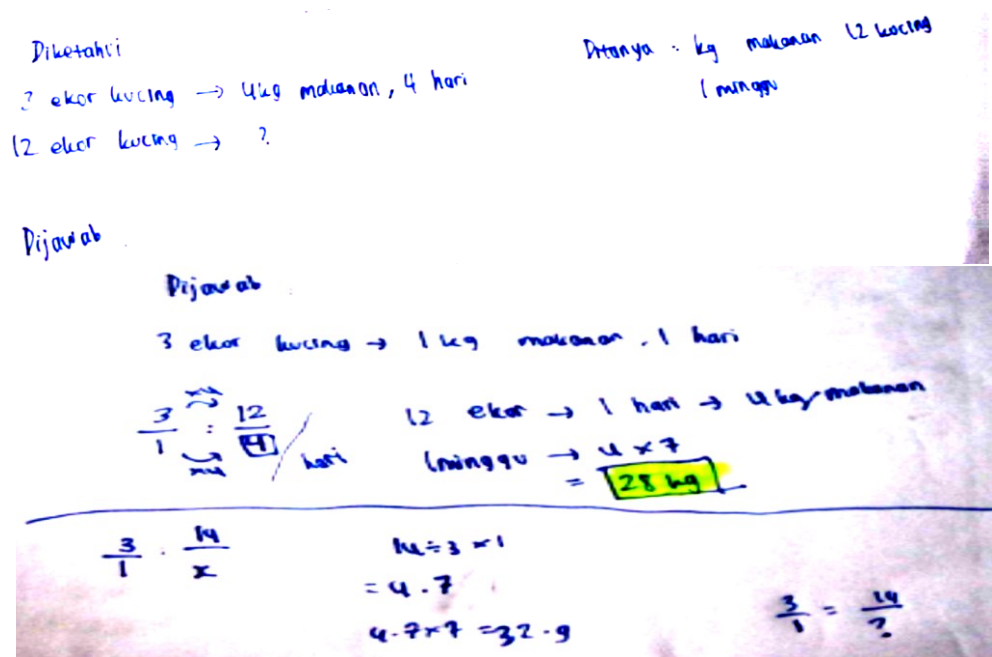 Diketahui
3 ekor kucing → 4kg makanan, 4 hari
12 ekor kucing → ?
Ditanya : kg makanan 12 kucing
1 minggu
Dijawab
Dijawab
3 ekor kucing → 1 kg makanan, 1 hari
x4
3/1 : 12/4 / hari
x4
12 ekor → 1 hari → 4 kg makanan
1 minggu → 4 x 7
= 28 kg
3/1 . 14/x
14 ÷ 3 x 1
= 4.7
4.7x7 = 32.9
3/1 = 14/?